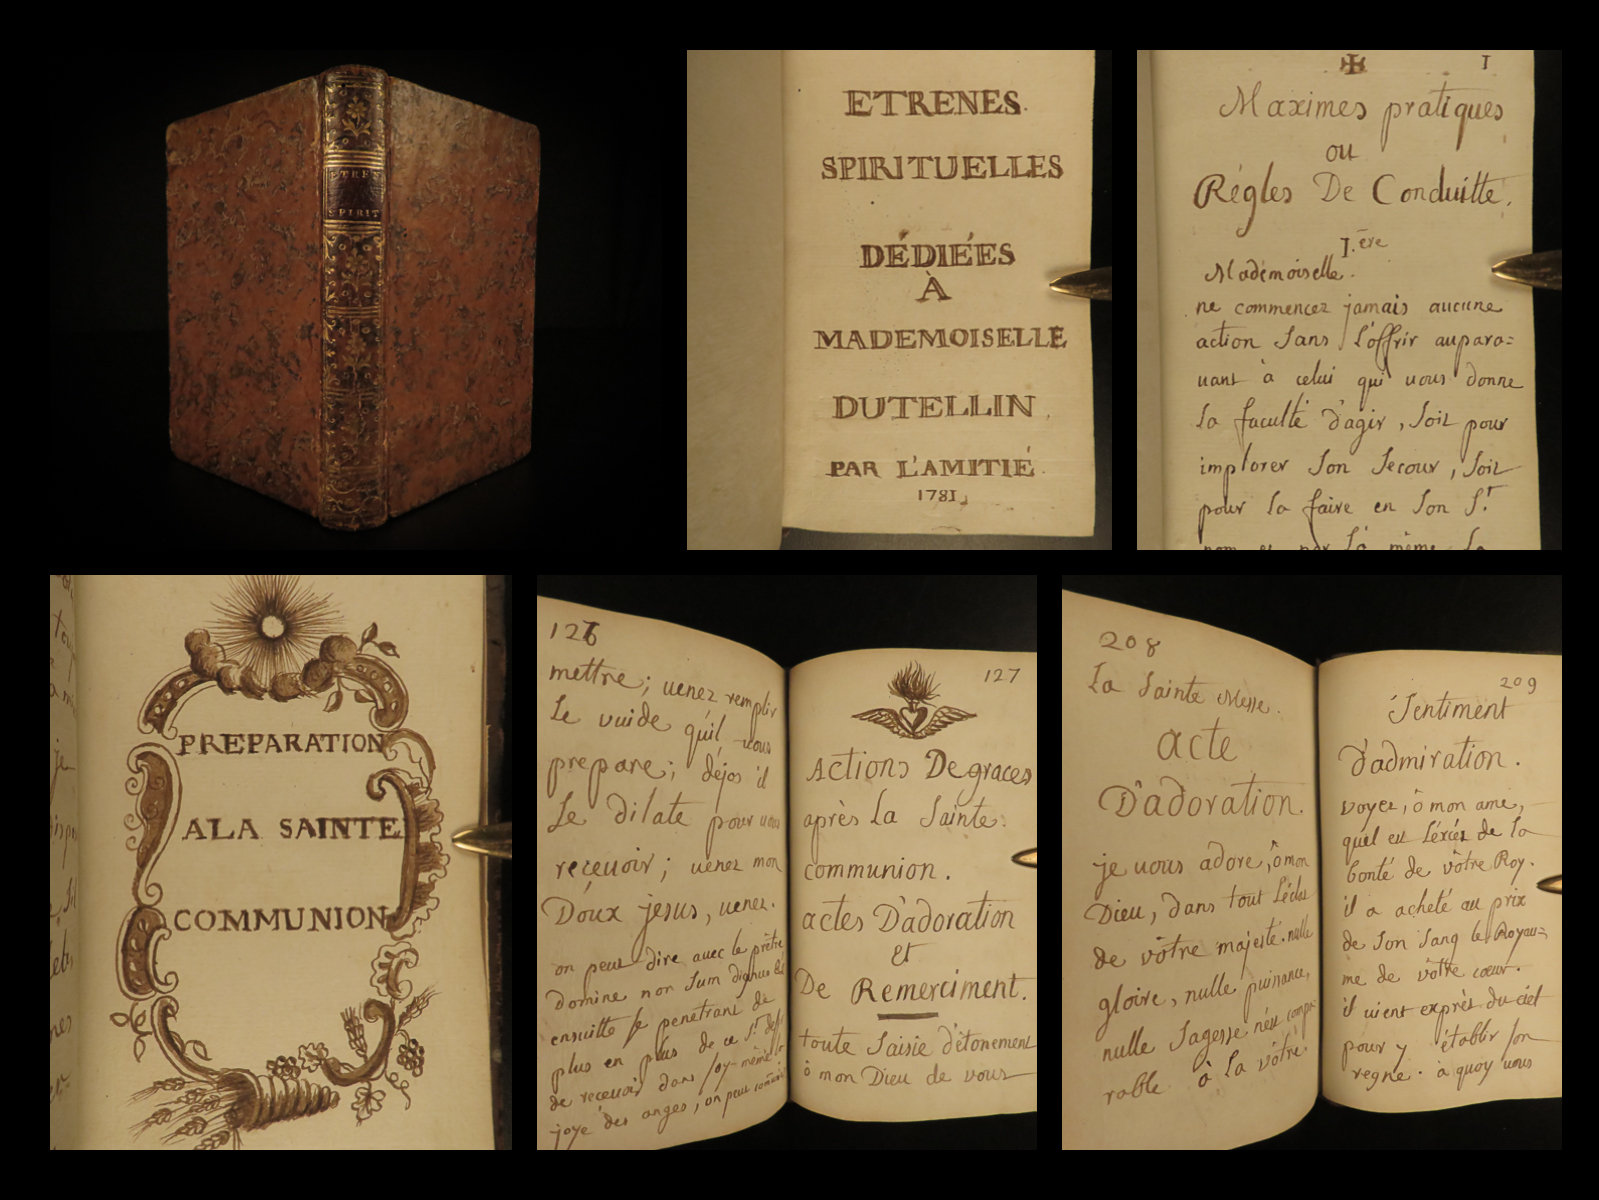 ETREN
SPIRIT
ETRENES
SPIRITUELLES
DÉDIÉES
À
MADEMOISELLE
DUTELLIN.
PAR L'AMITIÉ.
1781
1
Maximes pratiques
ou
Régles De Conduitte.
I.ère
Mademoiselle.
ne commencez jamais aucune
action sans l'offrir aupara=
uant à celui qui uous donne
la faculté d'agir, soit pour
implorer son secour, soit
pour la faire en son St.
nom et par la même la
PREPARATION
A LA SAINTE
COMMUNION
126
mettre; uenez remplir
Le vuide qu'il uous
prepare; déjos il
Le dilate pour uous
receuoir; uenez mon
Doux jesus, uenez.
on peut dire auec le prêtre
Domine non sum dignus et
ensuitte se penetrant de
plus en plus de ce St. desir
de receuoir dans soy-même la
joye des anges, on peut
127
Actions De graces
après La Sainte
communion.
actes D'adoration
Et
De Remerciment.
toute saisie d'étonement
ô mon Dieu de vous
208
La Sainte Messe.
acte
D'adoration.
je uous adore, ô mon
Dieu, dans tout l'éclat
de vôtre majesté. nulle
gloire, nulle puissance,
nulle sagesse n'est compa-
rable à la vôtre
209
Sentiment
d'admiration.
voyez, ô mon ame,
quel est l'éxcés de la
bonté de vôtre Roy.
il a acheté au prix
de son sang le Royau=
me de vôtre cœur.
il uient exprès du ciel
pour y établir son
regne. à quoy uous